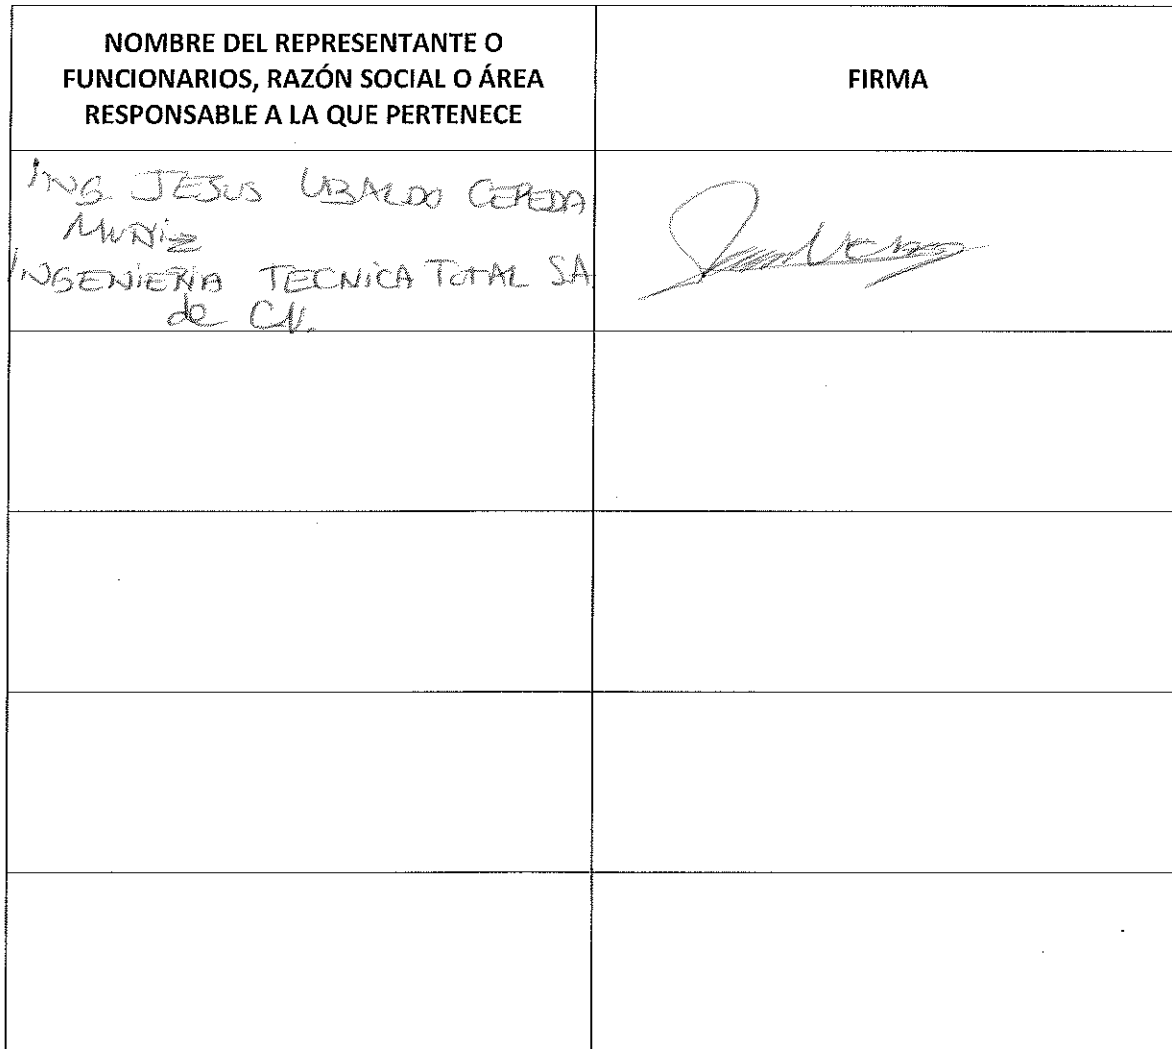 NOMBRE DEL REPRESENTANTE O
FUNCIONARIOS, RAZÓN SOCIAL O ÁREA
RESPONSABLE A LA QUE PERTENECE
FIRMA
ING. JESUS UBALDO CEPEDA
MUÑIZ
INGENIERIA TECNICA TOTAL SA
de C.V.